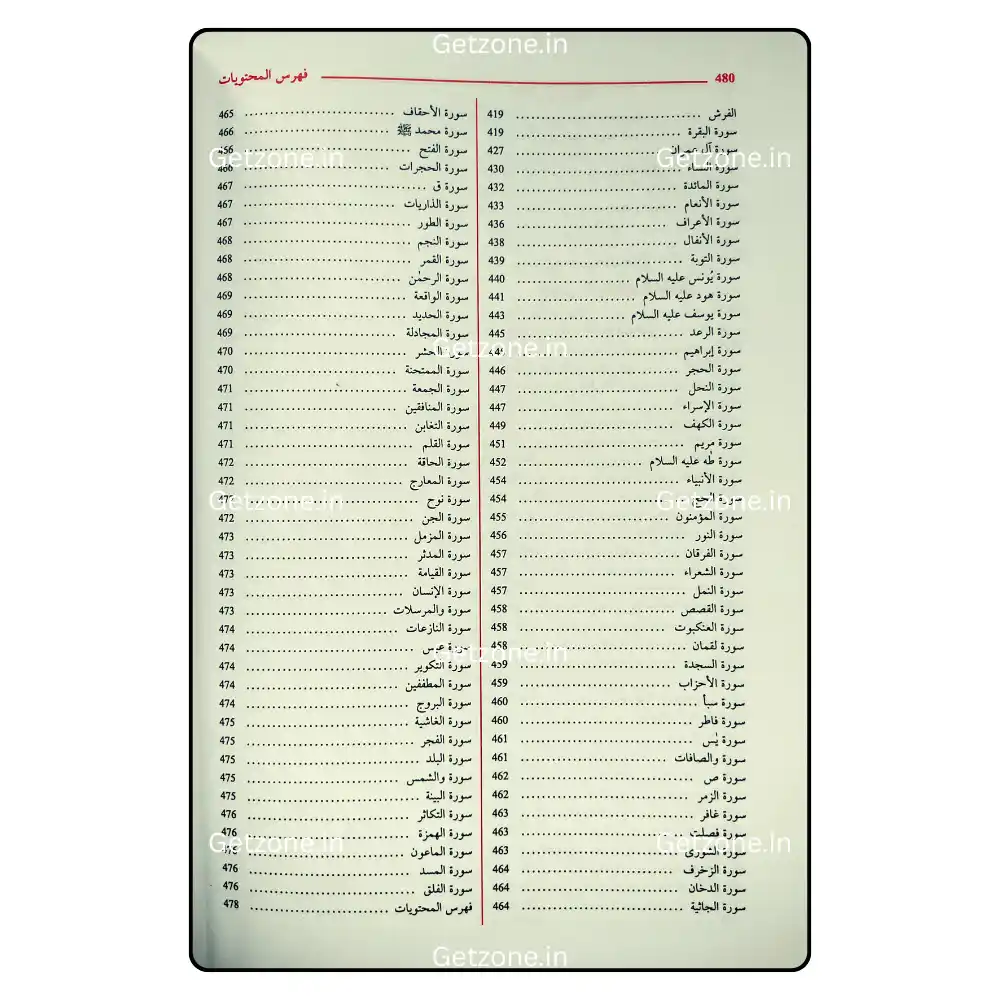 Getzone.in
480 فهرس المحتويات
الفرش 419
سورة البقرة 419
سورة آل عمران 427
سورة النساء 430
سورة المائدة 432
سورة الأنعام 433
سورة الأعراف 436
سورة الأنفال 438
سورة التوبة 439
سورة يُونس عليه السلام 440
سورة هود عليه السلام 441
سورة يوسف عليه السلام 443
سورة الرعد 445
سورة إبراهيم
سورة الحجر 446
سورة النحل 447
سورة الإسراء 447
سورة الكهف 449
سورة مريم 451
سورة طٰه عليه السلام 452
سورة الأنبياء 454
سورة الحج 454
سورة المؤمنون 455
سورة النور 456
سورة الفرقان 457
سورة الشعراء 457
سورة النمل 457
سورة القصص 458
سورة العنكبوت 458
سورة لقمان 458
سورة السجدة 459
سورة الأحزاب 459
سورة سبأ 460
سورة فاطر 460
سورة يٰس 461
سورة والصافات 461
سورة ص 462
سورة الزمر 462
سورة غافر 463
سورة فصلت 463
سورة الشورى 463
سورة الزخرف 464
سورة الدخان 464
سورة الجاثية 464
سورة الأحقاف 465
سورة محمد ﷺ 466
سورة الفتح 456
سورة الحجرات 466
سورة ق 467
سورة الذاريات 467
سورة الطور 467
سورة النجم 468
سورة القمر 468
سورة الرحمٰن 468
سورة الواقعة 469
سورة الحديد 469
سورة المجادلة 469
سورة الحشر 470
سورة الممتحنة 470
سورة الجمعة 471
سورة المنافقين 471
سورة التغابن 471
سورة القلم 471
سورة الحاقة 472
سورة المعارج 472
سورة نوح
سورة الجن 472
سورة المزمل 473
سورة المدثر 473
سورة القيامة 473
سورة الإنسان 473
سورة والمرسلات 473
سورة النازعات 474
سورة عبس 474
سورة التكوير 474
سورة المطففين 474
سورة البروج 474
سورة الغاشية 475
سورة الفجر 475
سورة البلد 475
سورة والشمس 475
سورة البينة 475
سورة التكاثر 476
سورة الهمزة 476
سورة الماعون
سورة المسد 476
سورة الفلق 476
فهرس المحتويات 478
Getzone.in
Getzone.in
Getzone.in
Getzone.in
Getzone.in
Getzone.in
Getzone.in
Getzone.in
Getzone.in